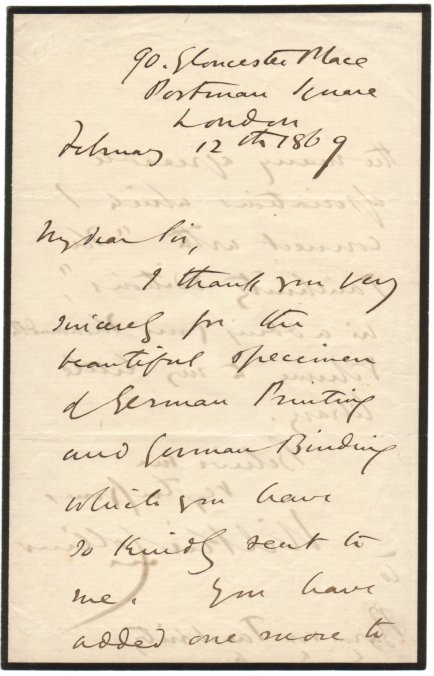 90. Gloucester Place
Portman Square
London
February 12th 1869
My dear Sir,
I thank you very
sincerely for the
beautiful specimen
of German Printing
and German Binding
which you have
so kindly sent to
me. You have
added one more to